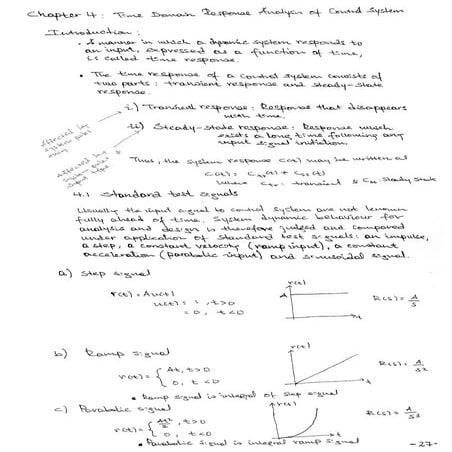 Chapter 4: Time Domain Response Analysis of Control System
Introduction:
• A manner in which a dynamic system responds to
an input, expressed as a function of time,
is called time response.
• The time response of a control system consists of
two parts: transient response and steady-state
response.
i) Transient response: Response that disappears
with time.
affected by
system poles
only
ii) Steady-state response: Response which
exists a long time following any
input signal initiation.
affected by
system poles
input type
Thus, the system response c(t) may be written as
c(t) = Ctr(t) + Css(t)
where Ctr: transient & Css: steady state
4.1 Standard test signals
Usually the input signal to control system are not known
fully ahead of time. System dynamic behaviour for
analysis and design is therefore judged and compared
under application of standard test signals: an impulse,
a step, a constant velocity (ramp input), a constant
acceleration (parabolic input) and sinusoidal signal.
a) Step signal
r(t) = Au(t)
u(t) = 1, t>0
= 0, t<0
r(t)
A
t
R(s) = A/s
b) Ramp signal
r(t) = { At, t>0
0, t<0
r(t)
t
R(s) = A/s2
• Ramp signal is integral of step signal
c) Parabolic signal
r(t) = { At2/2, t>0
0, t<0
r(t)
t
R(s) = A/s3
• Parabolic signal is integral ramp signal
-27-